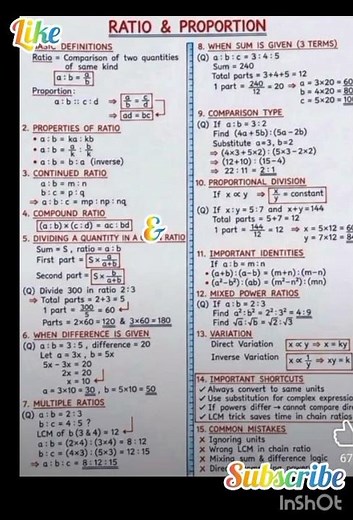 RATIO & PROPORTION
Like
BASIC DEFINITIONS
Ratio = Comparison of two quantities
of same kind
a:b = a/b
Proportion:
a:b :: c:d ⇒ a/b = c/d
⇒ ad = bc
2. PROPERTIES OF RATIO
• a:b = ka:kb
• a:b = a/k : b/k
• a:b = b:a (inverse)
3. CONTINUED RATIO
a:b = m:n
b:c = p:q
⇒ a:b:c = mp:np:nq
4. COMPOUND RATIO
(a:b)×(c:d) = ac:bd
&
5. DIVIDING A QUANTITY IN A RATIO
Sum = S, ratio = a:b
First part = S× a/a+b
Second part = S× b/a+b
(Q) Divide 300 in ratio 2:3
⇒ Total parts = 2+3 = 5
1 part = 300/5 = 60
Parts = 2×60 = 120 & 3×60 = 180
6. WHEN DIFFERENCE IS GIVEN
(Q) a:b = 3:5, difference = 20
Let a = 3x, b = 5x
5x - 3x = 20
2x = 20
x = 10
a = 3×10 = 30, b = 5×10 = 50
7. MULTIPLE RATIOS
(Q) a:b = 2:3
b:c = 4:5 ?
LCM of b (3 & 4) = 12
a:b = (2×4):(3×4) = 8:12
b:c = (4×3):(5×3) = 12:15
⇒ a:b:c = 8:12:15
8. WHEN SUM IS GIVEN (3 TERMS)
(Q) a:b:c = 3:4:5
Sum = 240
Total parts = 3+4+5 = 12
1 part = 240/12 = 20 ⇒ a = 3×20 = 60
b = 4×20 = 80
c = 5×20 = 100
9. COMPARISON TYPE
(Q) If a:b = 3:2
Find (4a+5b):(5a-2b)
Substitute a=3, b=2
⇒ (4×3+5×2):(5×3-2×2)
⇒ (12+10):(15-4)
⇒ 22:11 = 2:1
10. PROPORTIONAL DIVISION
If x ∝ y ⇒ x/y = constant
(Q) If x:y = 5:7 and x+y = 144
Total parts = 5+7 = 12
1 part = 144/12 = 12 ⇒ x = 5×12 = 60
y = 7×12 = 84
11. IMPORTANT IDENTITIES
If a:b = m:n
• (a+b):(a-b) = (m+n):(m-n)
• (a²-b²):(ab) = (m²-n²):(mn)
12. MIXED POWER RATIOS
(Q) If a:b = 2:3
Find a²:b² = 2²:3² = 4:9
Find √a:√b = √2:√3
13. VARIATION
Direct Variation x ∝ y ⇒ x = ky
Inverse Variation x ∝ 1/y ⇒ xy = k
14. IMPORTANT SHORTCUTS
✓ Always convert to same units
✓ Use substitution for complex expressio
✓ If powers differ → cannot compare dir
✓ LCM trick saves time in chain ratios
15. COMMON MISTAKES
× Ignoring units
× Wrong LCM in chain ratio
× Mixing sum & difference logic
67
Subscribe
InShOt